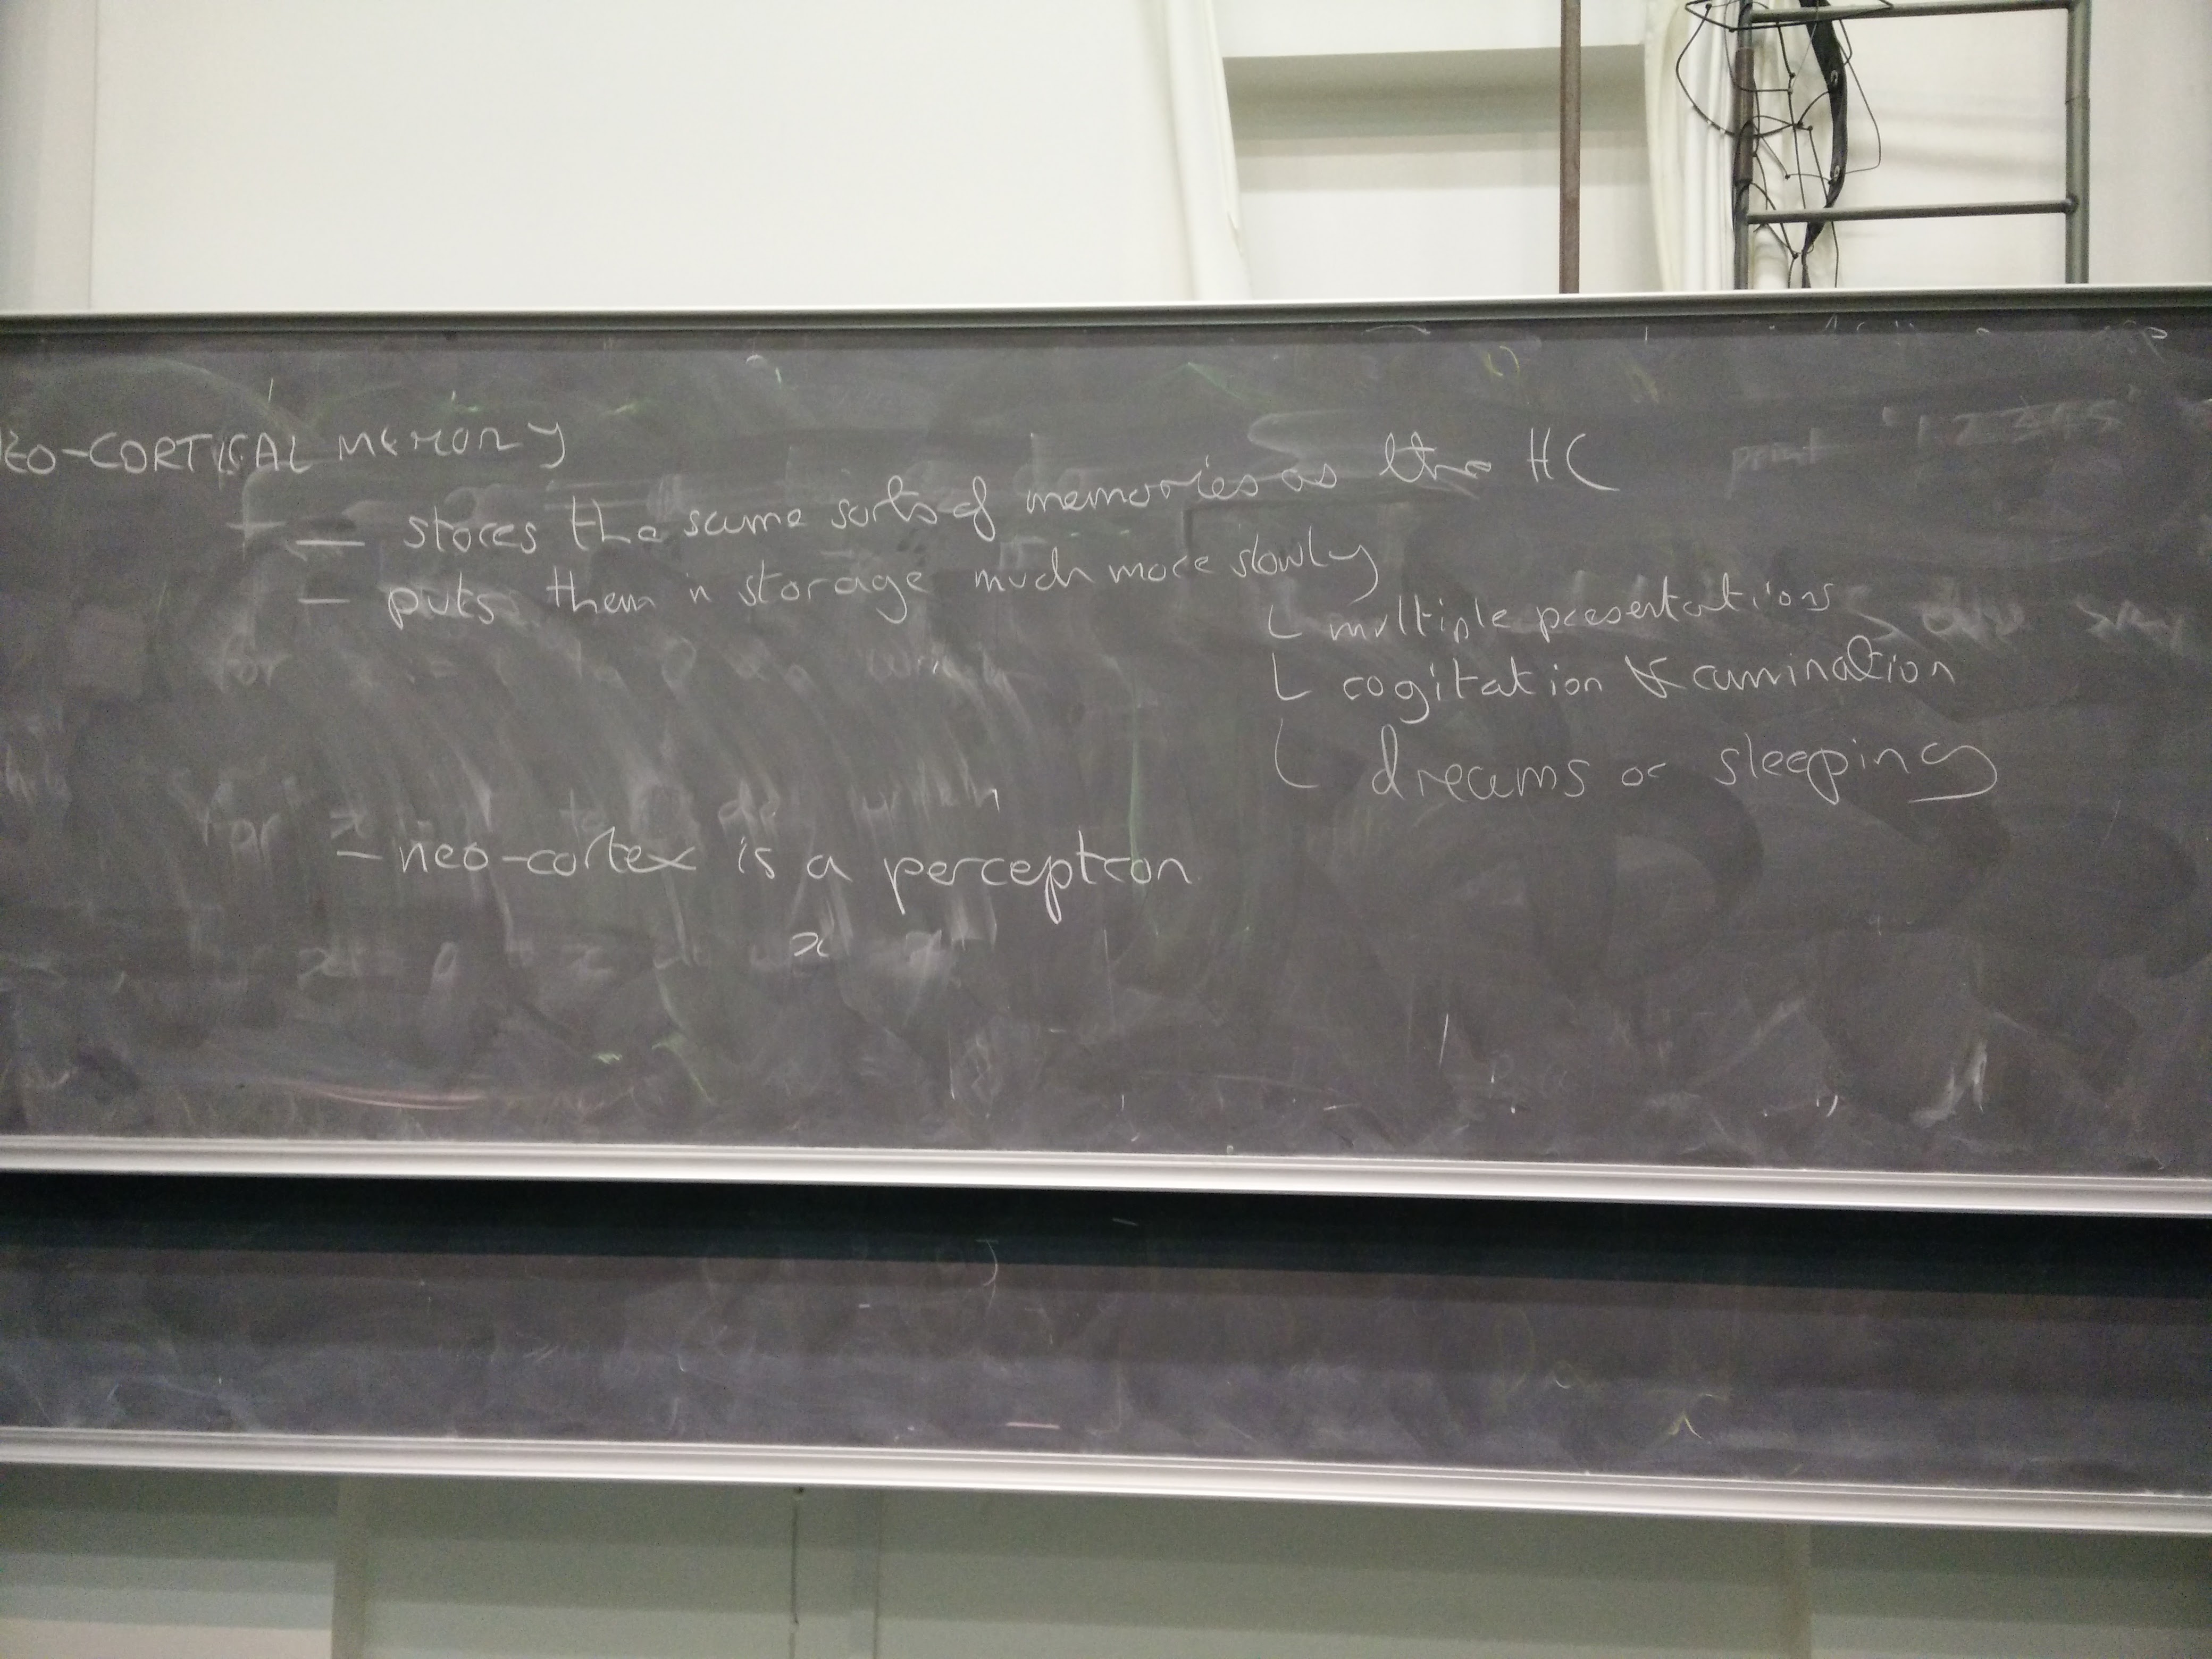 EO-CORTICAL MEMORY
— stores the same sorts of memories as the HC
— puts them in storage much more slowly
└ multiple presentations
└ cogitation & rumination
└ dreams or sleeping
— neo-cortex is a perceptron
x
print "12345"
for
for x to do